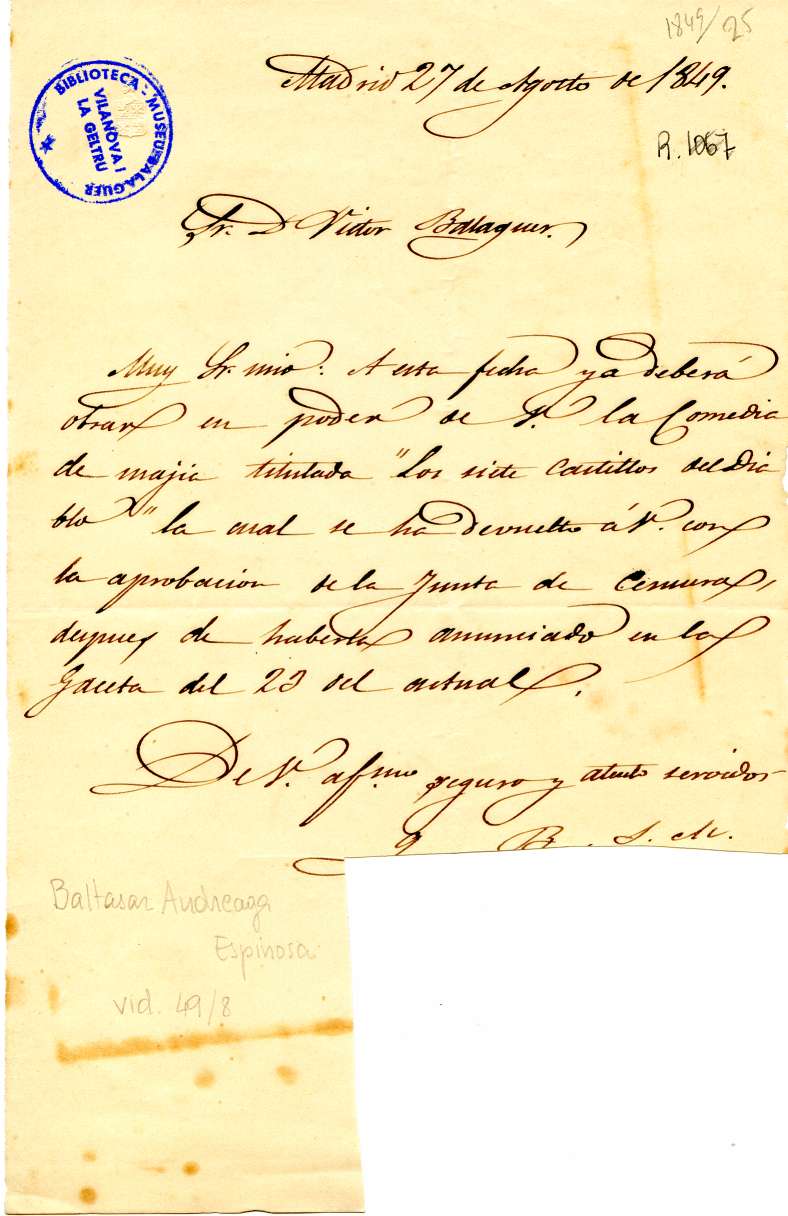 1849/25
Madrid 27 de Agosto de 1849.
BIBLIOTECA - MUSEU BALAGUER
VILANOVA I
LA GELTRU
R. 1067
Sr. D Victor Balaguer.
Muy Sr. mio: A esta fecha ya deberá
obrar en poder de V. la Comedia
de majia titulada "Los siete Castillos del Dia
blo" la cual se ha devuelto á V. con
la aprobacion de la Junta de Censura,
despues de haberla anunciado en la
Gaceta del 23 del actual.
De V. afsmo seguro y atento servidor
Q B. S. M.
Baltasar Andreaga
Espinosa
vid. 49/8